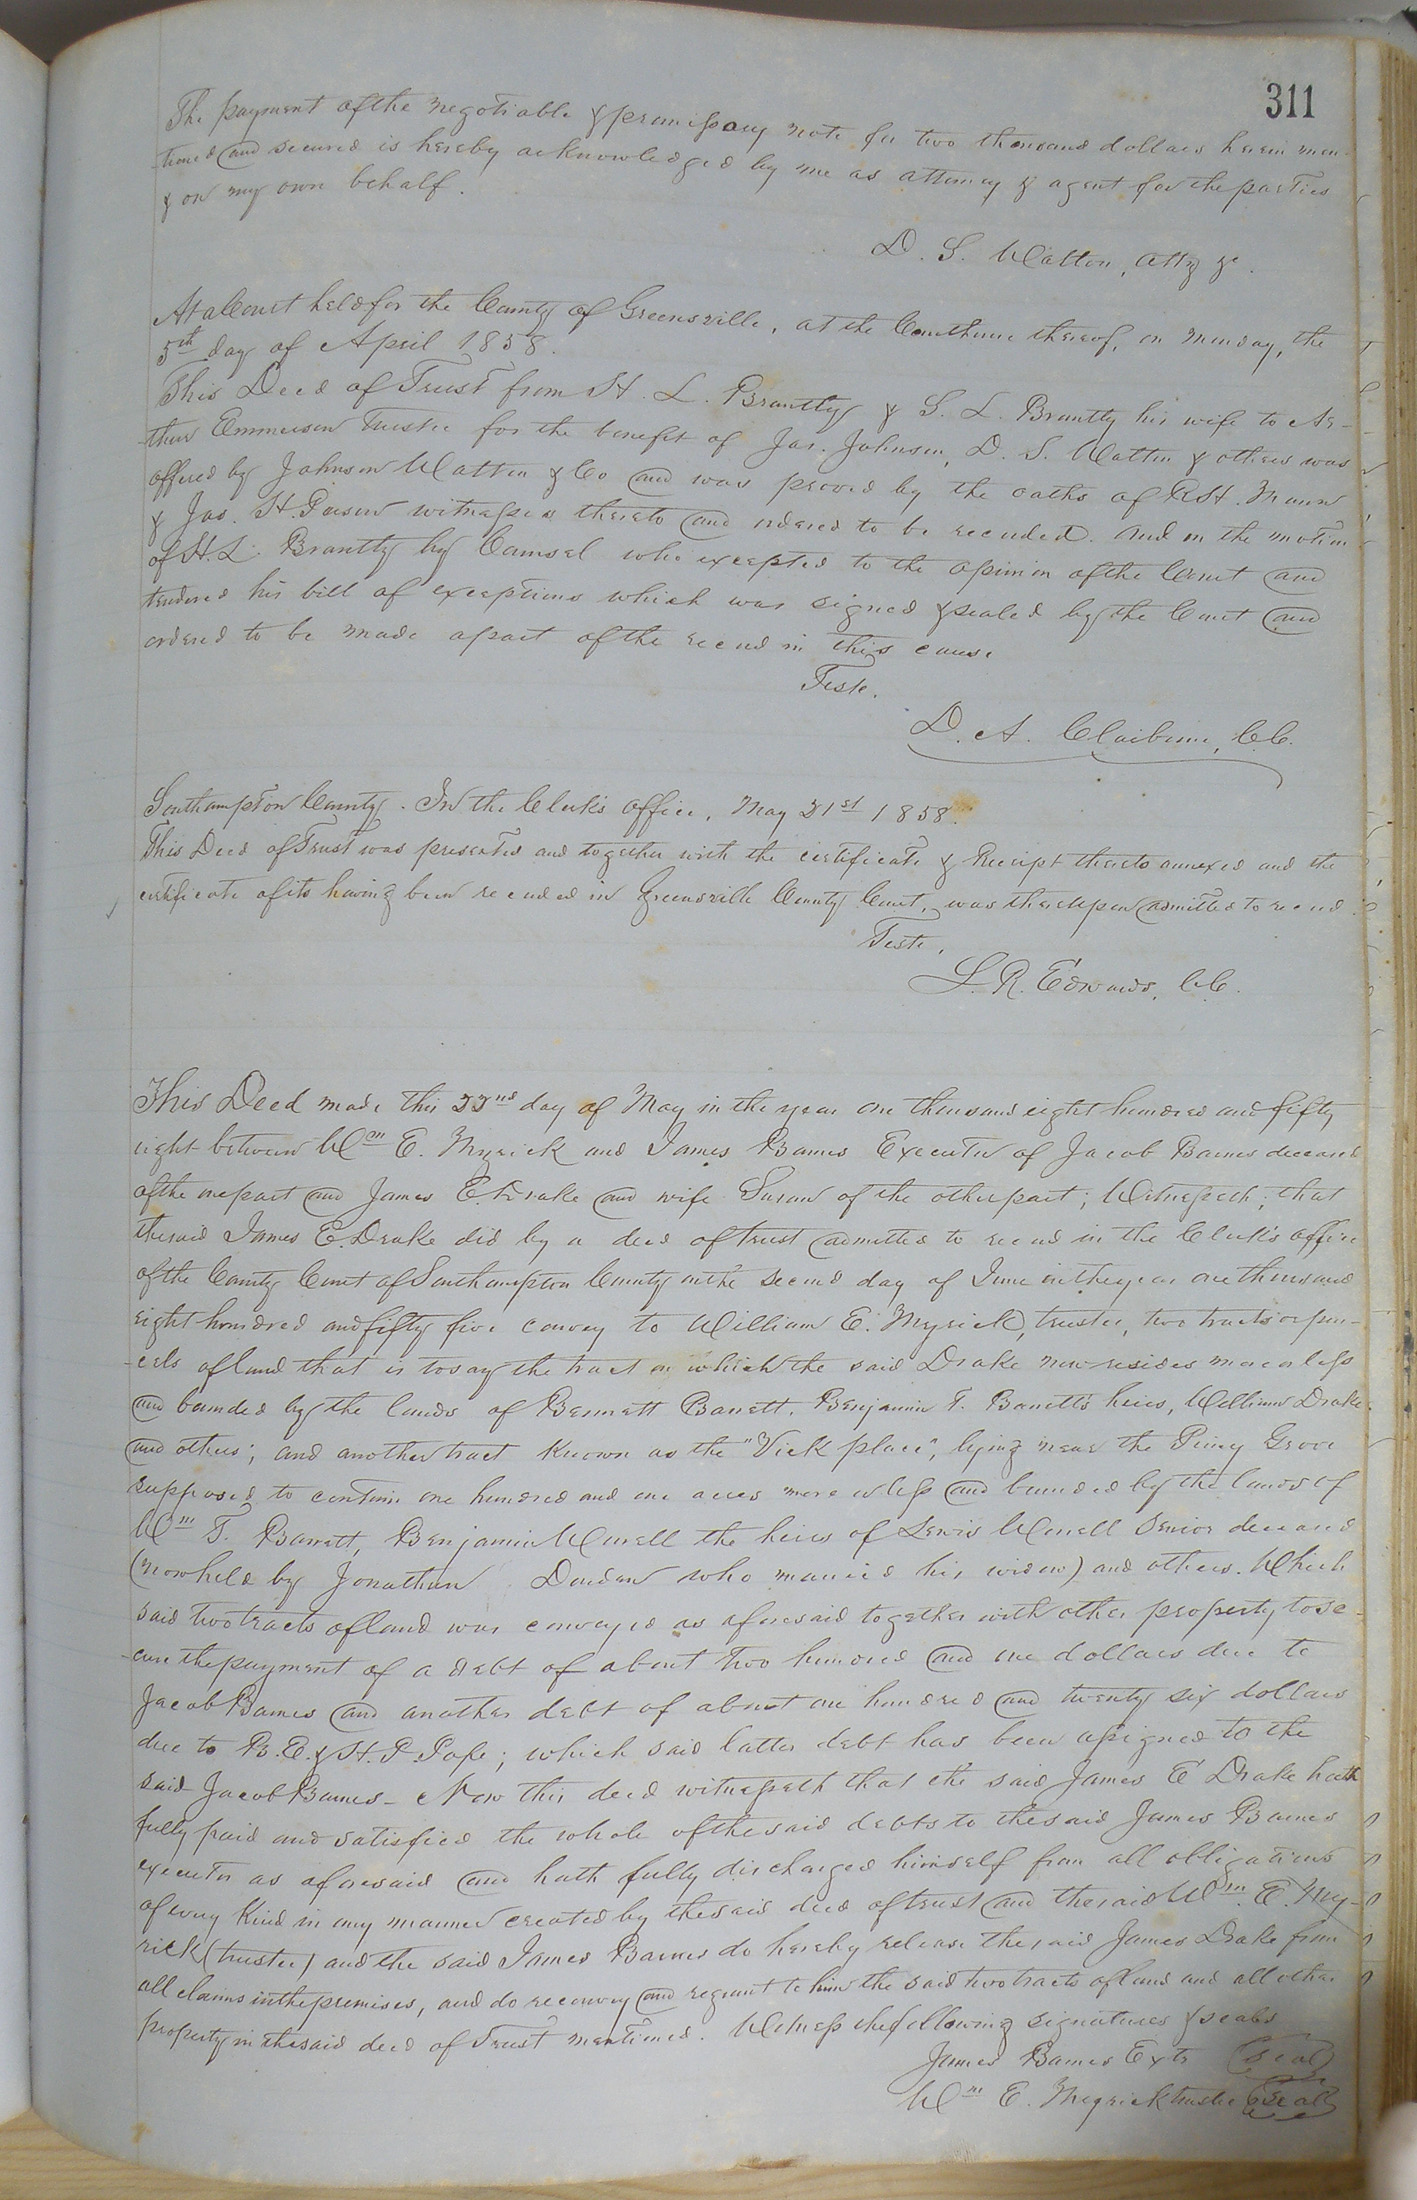 311
The payment of the negotiable & promissory note for two thousand dollars herein men-
tioned and secured is hereby acknowledged by me as attorney & agent for the parties
& on my own behalf.
D. S. Watton, atty &c.
At a Court held for the County of Greensville, at the Courthouse thereof, on Monday, the
5th day of April 1858.
This Deed of Trust from H. L. Brantly & S. L. Brantly his wife to Ar-
thur Emmerson Trustee for the benefit of Jas. Johnson, D. S. Watton & others was
offered by Johnson Watton & Co and was proved by the oaths of R.H. Mann
& Jas. H. Peirson witnesses thereto and ordered to be recorded. And on the motion
of H. L. Brantly by Counsel who excepted to the opinion of the Court and
tendered his bill of exceptions which was signed & sealed by the Court and
ordered to be made a part of the record in this cause
Teste.
D. A. Claiborne, C.C.
Southampton County. In the Clerk's office, May 21st 1858.
This Deed of Trust was presented and together with the certificate & Receipt thereto annexed and the
certificate of its having been recorded in Greensville County Court, was thereupon admitted to record
Teste,
L. R. Edwards, C.C.
This Deed made this 22nd day of May in the year one thousand eight hundred and fifty
eight between Wm E. Myrick and James Barnes Executor of Jacob Barnes deceased
of the one part and James E. Drake and wife Susan of the other part; Witnesseth; that
the said James E. Drake did by a deed of trust admitted to record in the Clerk's office
of the County Court of Southampton County on the second day of June in the year one thousand
eight hundred and fifty five convey to William E. Myrick, trustee, two tracts or par-
-cels of land that is to say the tract on which the said Drake now resides more or less
and bounded by the lands of Bennett Barrett, Benjamin F. Barrett's heirs, William Drake
and others; and another tract known as the "Vick place", lying near the Piney Grove
supposed to contain one hundred and one acres more or less and bounded by the lands of
Wm T. Barrett, Benjamin Worrell the heirs of Lewis Worrell Senior deceased
(now held by Jonathan Darden who married his widow) and others. Which
said two tracts of land was conveyed as aforesaid together with other property to se-
-cure the payment of a debt of about two hundred and one dollars due to
Jacob Barnes and another debt of about one hundred and twenty six dollars
due to B. E. & H. P. Pope; which said latter debt has been assigned to the
said Jacob Barnes - Now this deed witnesseth that the said James E Drake hath
fully paid and satisfied the whole of the said debts to the said James Barnes
executor as aforesaid and hath fully discharged himself from all obligations
of every kind in any manner created by the said deed of trust and the said Wm. E. My-
rick (trustee) and the said James Barnes do hereby release the said James Drake from
all claims in the premises, and do reconvey and regrant to him the said two tracts of land and all other
property in the said deed of Trust mentioned. Witness the following signatures & seals
James Barnes Extr (Seal)
Wm E. Myrick trustee (Seal)